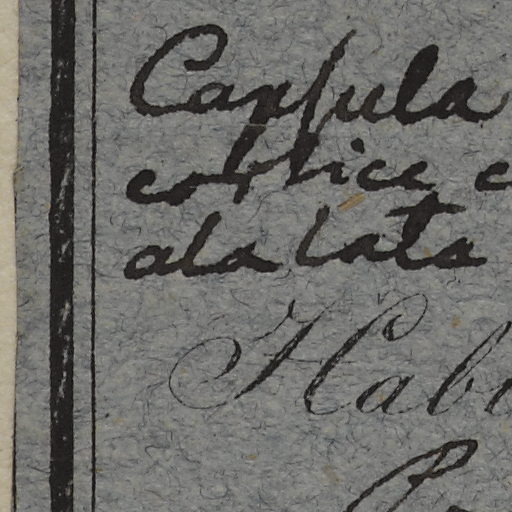 Capsula
cortice c
ala lata
Hab